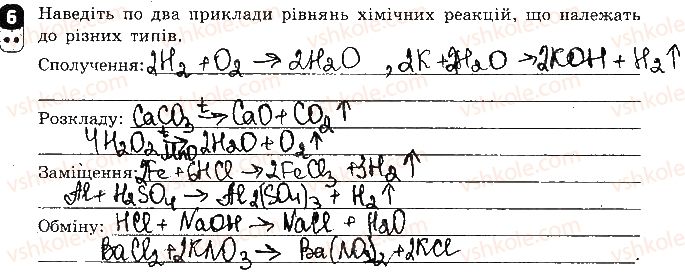 6 Наведіть по два приклади рівнянь хімічних реакцій, що належать
до різних типів.
Сполучення: 2H₂ + O₂ → 2H₂O , 2K + 2H₂O → 2KOH + H₂↑
Розкладу: CaCO₃ →(t) CaO + CO₂↑
4H₂O₂ →(t) 2H₂O + O₂↑
Заміщення: 2Fe + 6HCl → 2FeCl₃ + 3H₂↑
Al + H₂SO₄ → Al₂(SO₄)₃ + H₂↑
Обміну: HCl + NaOH → NaCl + H₂O
BaCl₂ + 2KNO₃ → Ba(NO₃)₂ + 2KCl